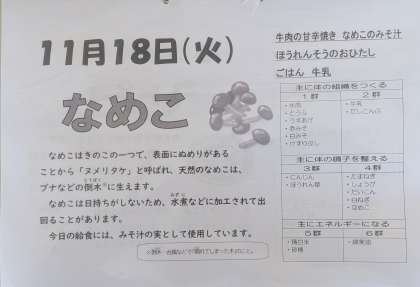 11月18日(火)
なめこ
なめこはきのこの一つで、表面にぬめりがある
ことから「ヌメリタケ」と呼ばれ、天然のなめこは、
ブナなどの倒木※に生えます。
なめこは日持ちがしないため、水煮などに加工されて出
回ることがあります。
今日の給食には、みそ汁の実として使用しています。
牛肉の甘辛焼き なめこのみそ汁
ほうれんそうのおひたし
ごはん 牛乳
主に体の組織をつくる
1群 2群
・牛肉 ・牛乳
・とうふ ・だしこんぶ
・うすあげ
・赤みそ
・白みそ
・けずりぶし
主に体の調子を整える
3群 4群
・にんじん ・たまねぎ
・ほうれん草 ・しょうが
・だいこん
・白ねぎ
・なめこ
主にエネルギーになる
5群 6群
・精白米
・砂糖